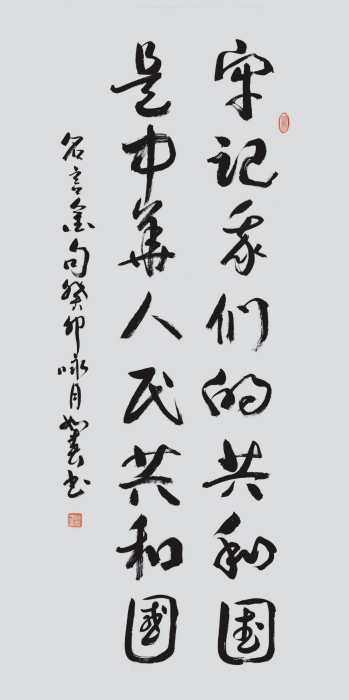 牢记我们的共和国
是中华人民共和国
名言金句癸卯咏月如春书